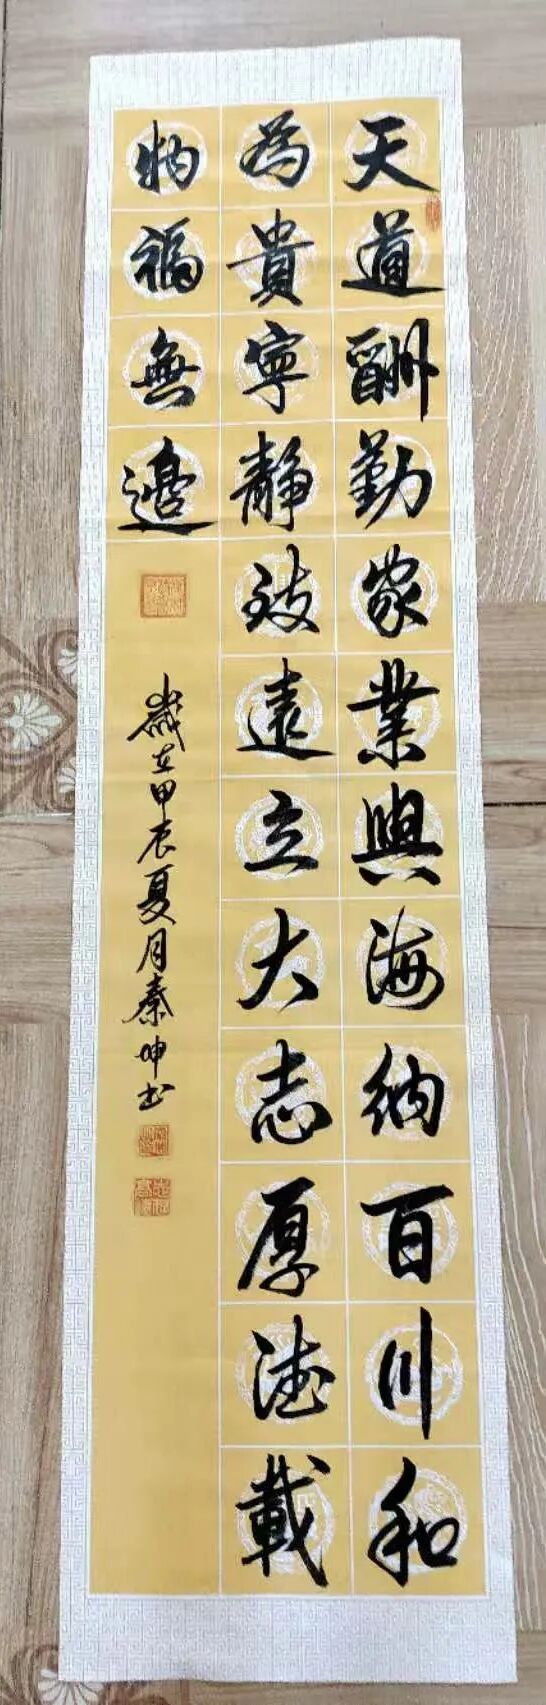 天道酬勤家業興海納百川和
為貴寧靜致遠立大志厚德載
物福無邊
歲在甲辰夏月秦坤书